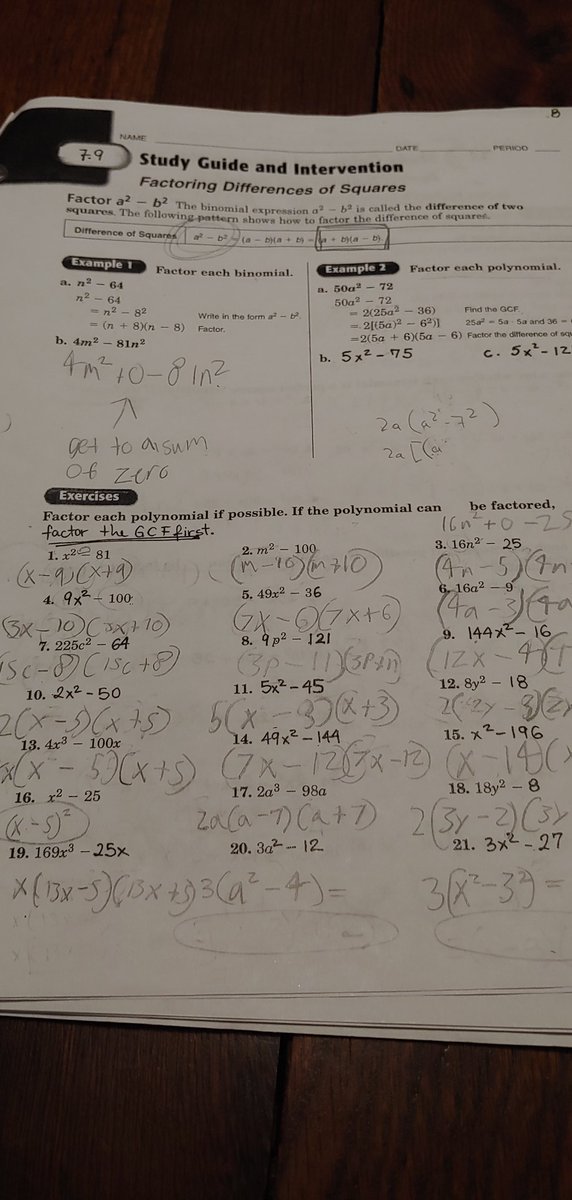 .8
NAME DATE PERIOD
7.9
Study Guide and Intervention
Factoring Differences of Squares
Factor a² − b² The binomial expression a² − b² is called the difference of two
squares. The following pattern shows how to factor the difference of squares.
Difference of Squares a² − b² = (a − b)(a + b) = (a + b)(a − b).
Example 1 Factor each binomial.
a. n² − 64
n² − 64
= n² − 8² Write in the form a² − b².
= (n + 8)(n − 8) Factor.
b. 4m² − 81n²
4m² + 0 − 81n²
get to a sum
of zero
Example 2 Factor each polynomial.
a. 50a² − 72
50a² − 72
= 2(25a² − 36) Find the GCF.
= 2[(5a)² − 6²)] 25a² = 5a · 5a and 36 =
= 2(5a + 6)(5a − 6) Factor the difference of
b. 5x² − 75 c. 5x² − 12
2a(a² − 7²)
2a[(a
Exercises
Factor each polynomial if possible. If the polynomial can be factored,
factor the GCF first.
16n² + 0 − 25
1. x² − 81 2. m² − 100 3. 16n² − 25
(x − 9)(x + 9) (m − 10)(m + 10) (4n − 5)(4n
4. 9x² − 100 5. 49x² − 36 6. 16a² − 9
(3x − 10)(3x + 10) (7x − 6)(7x + 6) (4a − 3)(4a
7. 225c² − 64 8. 9p² − 121 9. 144x² − 16
15c − 8)(15c + 8) (3p − 11)(3p + 11) (12x − 4)(1
10. 2x² − 50 11. 5x² − 45 12. 8y² − 18
2(x − 5)(x + 5) 5(x − 3)(x + 3) 2(2y − 3)(2y
13. 4x³ − 100x 14. 49x² − 144 15. x² − 196
x(x − 5)(x + 5) (7x − 12)(7x − 12) (x − 14)(x
16. x² − 25 17. 2a³ − 98a 18. 18y² − 8
(x − 5)² 2a(a − 7)(a + 7) 2(3y − 2)(3y
19. 169x³ − 25x 20. 3a² − 12 21. 3x² − 27
x(13x − 5)(13x + 5) 3(a² − 4) = 3(x² − 3²) =